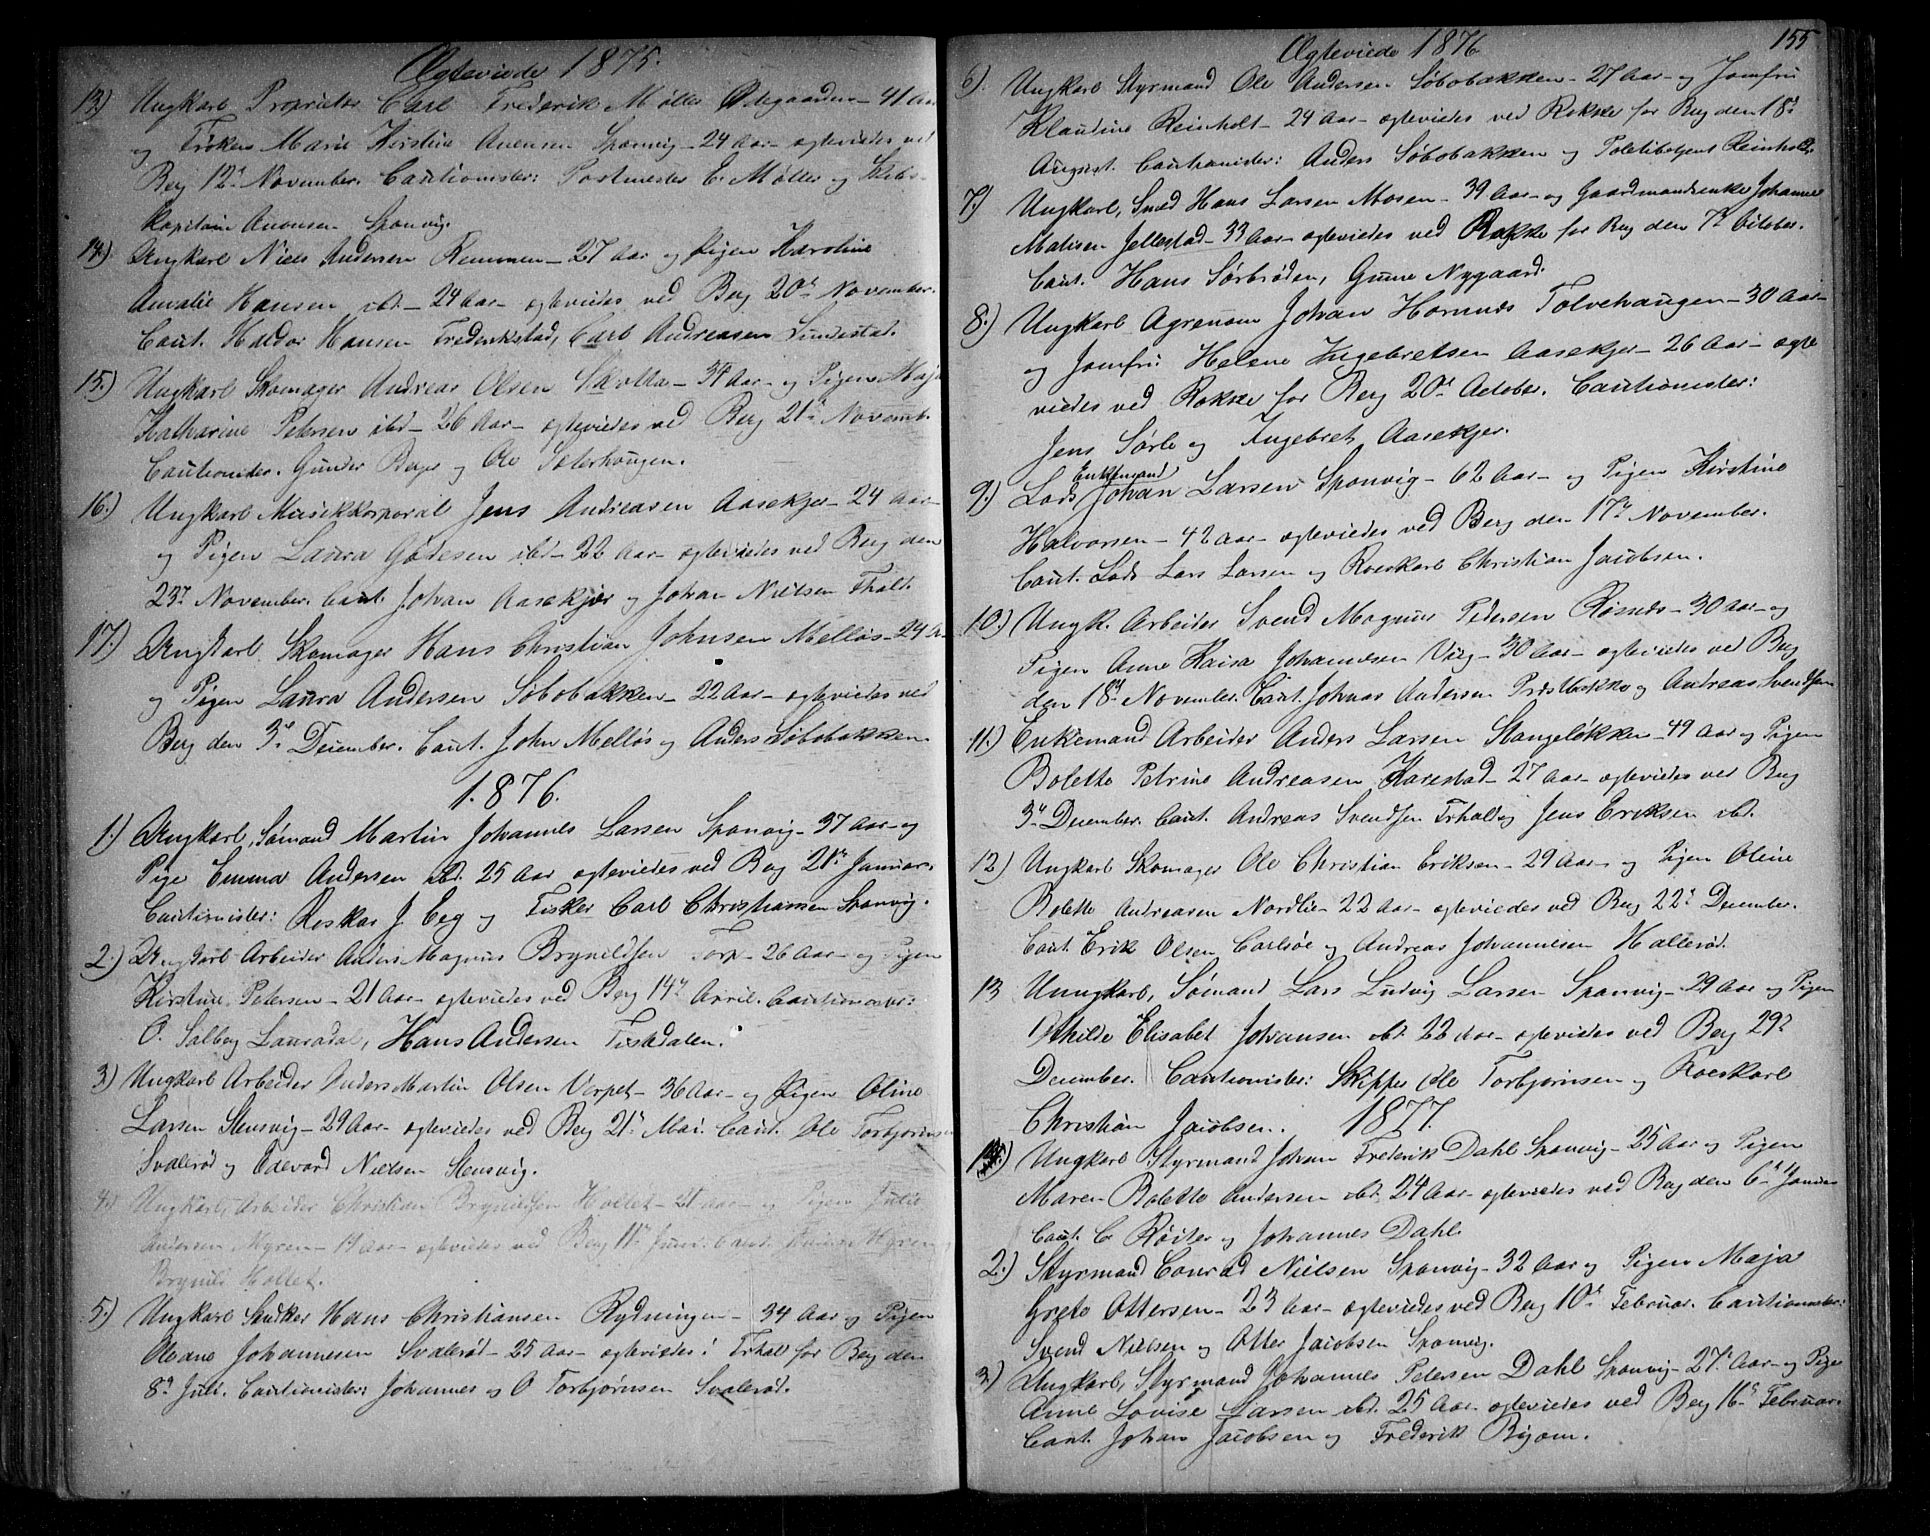 Ægteviede 1875.
13.) Ungkarl Proprietær Carl Frederik Møller Ødegaarden - 41 Aar
og Frøken Marie Kirstine Anensen Sponvig - 24 Aar - ægteviedes ved
Berg 12te November. Cautionister: Postmester C. Møller og Skibs-
kapitain Anensen Sponvig.
14.) Ungkarl Niels Andersen Remmen - 27 Aar og Pigen Karoline
Amalie Hansen ibd - 24 Aar - ægteviedes ved Berg 20de November.
Caut. Haldor Hansen Frederikstad, Carl Andreasen Sundestad.
15.) Ungkarl Skomager Andreas Olsen - 34 Aar - og Pigen Maja
Katharine Petersen ibd - 26 Aar - ægteviedes ved Berg 21de Novemb.
Cautionister. Gunder Berger og Ole Sæterhaugen.
16.) Ungkarl Musikkorporal Jens Andreasen Aasekjer - 24 Aar -
og Pigen Laura ibd - 22 Aar - ægteviedes ved Berg den
23de November. Caut. Johan Aasekjær og Johan Nielsen Fhald.
17.) Ungkarl Skomager Hans Christian Johnsen Melløs - 24 A -
og Pigen Laura Andersen Søbobakken - 22 Aar - ægteviedes ved
Berg den 3de December. Caut. John Melløs og Anders Søbobakken.
1876.
1.) Ungkarl, Sømand Martin Johannes Larsen Sponvig - 37 Aar - og
Pige Emma Andersen ibd. 25 Aar ægteviedes ved Berg 21de Januar.
Cautionister: Roskar J. Eeg og Fisker Carl Christiansen Sponvig.
2.) Ungkarl Arbeider Anders Magnus Brynildsen Torp - 26 Aar - og Pigen
Kirstine Petersen - 21 Aar - ægteviedes ved Berg 14de April. Cautionister:
O. Solberg Lauradal, Hans Andersen Tistadalen.
3.) Ungkarl Arbeider Anders Martin Olsen Vorpet - 36 Aar - og Pigen Oline
Larsen Stensvig - 29 Aar - ægteviedes ved Berg 21de Mai. Caut. Ole Torbjørnsen
Svalerød og Edevard Nielsen Stensvig.
4.) Ungkarl, Arbeider Christian Brynildsen Hollet - 21 Aar - og Pigen Julie
Andersen Myren - 19 Aar - ægteviedes ved Berg 11te Juni. Caut. Myren
Brynild Hollet.
5.) Ungkarl Snedker Hans Christiansen Rydningen - 34 Aar og Pigen
Oleane Johannesen Svalerød - 25 Aar - ægteviedes i Frhal for Berg den
8de Juli. Cautionister: Johannes og O Torbjørnsen Svalerød.
155
Ægteviede 1876
6.) Ungkarl Styrmand Ole Andersen Søbobakken - 27 Aar - og Jomfru
Klaudine Reinholt - 24 Aar - ægteviedes ved Rokke for Berg den 18de
August. Cautionister: Anders Søbobakken og Politibetjent Reinholt.
7.) Ungkarl, Smed Hans Larsen Mosen - 39 Aar - og Gaardmandsenke Johanne
Matisen Jellestad - 33 Aar - ægteviedes ved Rokke for Berg den 7de October.
Caut. Hans Sørbrøden, Gunne Nygaard.
8.) Ungkarl Agronom Johan Hornnes Tolvehaugen - 30 Aar -
og Jomfru Helene Ingebretsen Aasekjer - 26 Aar - ægte
viedes ved Rokke for Berg 20de October. Cautionister:
Jens Sørle og Ingebret Aasekjer.
Enkemand
9.) Lods Johan Larsen Sponvig - 62 Aar - og Pigen Kirstine
Halvorsen - 42 Aar - ægteviedes ved Berg den 17de November.
Caut. Lods Lars Larsen og Roeskarl Christian Jacobsen.
10.) Ungk. Arbeider Svend Magnus Pedersen Røsneds - 30 Aar - og
Pigen Anne Kaisa Johannesen Vug - 30 Aar - ægteviedes ved Berg
den 18de November. Caut. Johnas Andersen Præstbakke og Andreas Svendsen
11.) Enkemand Arbeider Anders Larsen Stangeløkken - 49 Aar og Pigen
Bolette Petrine Andreasen Harestad - 27 Aar - ægteviedes ved Berg
3de December. Caut. Andreas Svendsen Frhald og Jens Eriksen ibd.
12.) Ungkarl Skomager Ole Christian Eriksen - 29 Aar - og Pigen Oline
Bolette Andreasen Nordlie - 22 Aar - ægteviedes ved Berg 22de December.
Caut. Erik Olsen Carlsøe og Andreas Johannesen Hallerød.
13 Unngkarl, Sømand Lars Ludvig Larsen Sponvig - 29 Aar og Pigen
Othilde Elisabet Johansen ibd. 22 Aar - ægteviedes ved Berg 29de
December. Cautionister: Skipper Ole Torbjørnsen og Roeskarl
Christian Jacobsen. 1877.
1.) Ungkarl Styrmand Johan Frederik Dahl Sponvig - 25 Aar og Pigen
Maren Bolette Andersen ibd. 24 Aar - ægteviedes ved Berg den 6te Januar
Caut. C. Røiter og Johannes Dahl.
2.) Styrmand Conrad Nielsen Sponvig - 32 Aar og Pigen Maja
Grete Ottersen - 23 Aar - ægteviedes ved Berg 10de Februar. Cautionister:
Svend Nielsen og Otter Jacobsen Sponvig.
3.) Ungkarl, Styrmand Johannes Petersen Dahl Sponvig - 27 Aar - og Pige
Anne Lovise Larsen ibd. 25 Aar - ægteviedes ved Berg 16de Februar.
Caut. Johan Jacobsen og Frederik Bjørn.